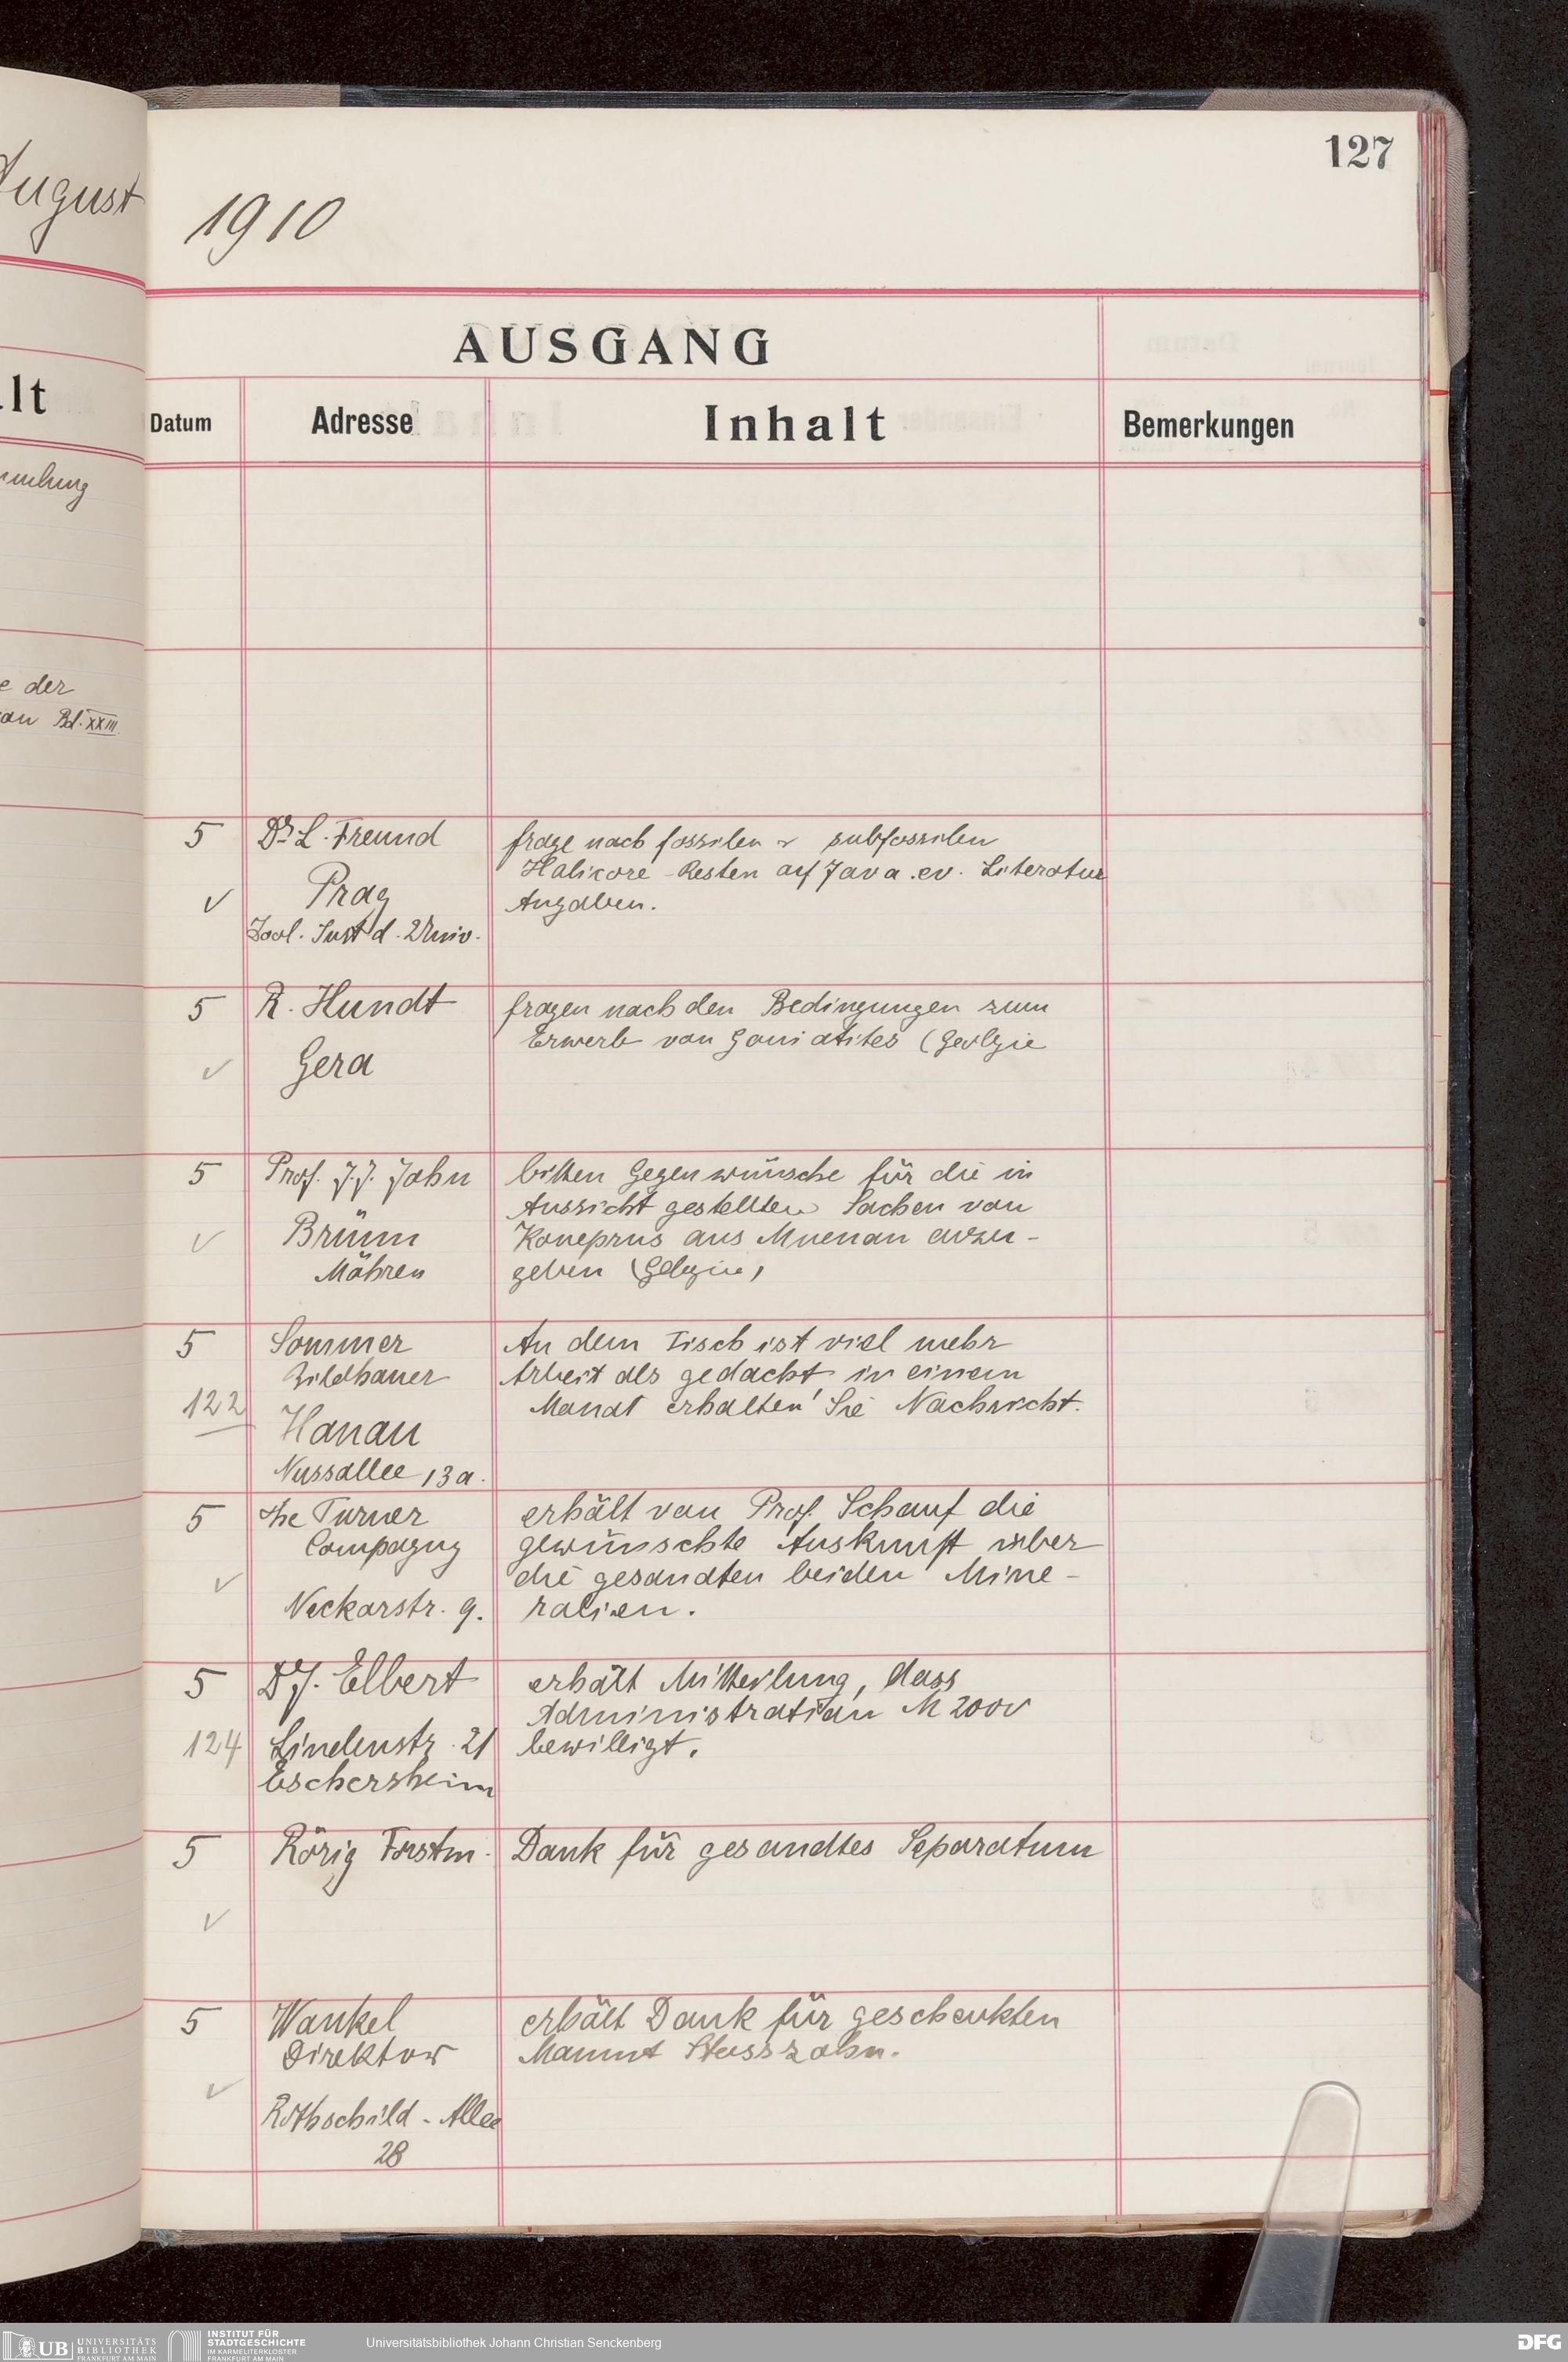 August
127
1910
AUSGANG
lt
Datum
Adresse
Inhalt
Bemerkungen
mlung
e der
Bd. XXIII
5
Dr L. Freund
frage nach fossilen u subfossilen
Halicore-Resten auf Java. ev. Literatur
✓
Prag
Angaben.
Zool. Inst d. Univ.
5
R. Hundt
fragen nach den Bedingungen zum
Erwerb von Goniatites (Geolgie
✓
Gera
5
Prof. J. J. Jahn
bitten Gegenwünsche für die in
Aussicht gestellten Sachen von
✓
Brünn
Koneprus aus
Mähren
geben
5
Sommer
An dem Tisch ist viel mehr
Bildhauer
Arbeit als gedacht in einem
122
Hanau
Monat erhalten Sie Nachricht.
Nussallee 13a.
5
The Turner
erhält von Prof. Schauf die
Compagny
gewünschte Auskunft über
✓
die gesandten beiden Mine-
Neckarstr. 9.
ralien.
5
Dr J. Elbert
erhält Mitteilung, dass
Administration M 2000
124
Lindenstr. 21
bewilligt.
Eschersheim
5
Rörig Forstm.
Dank für gesandtes Separatum
✓
5
Wankel
erhält Dank für geschenkten
Direktor
Mamut Stosszahn.
✓
Rothschild-Allee
28
UB
UNIVERSITÄTS
BIBLIOTHEK
FRANKFURT AM MAIN
INSTITUT FÜR
STADTGESCHICHTE
IM KARMELITERKLOSTER
FRANKFURT AM MAIN
Universitätsbibliothek Johann Christian Senckenberg
DFG